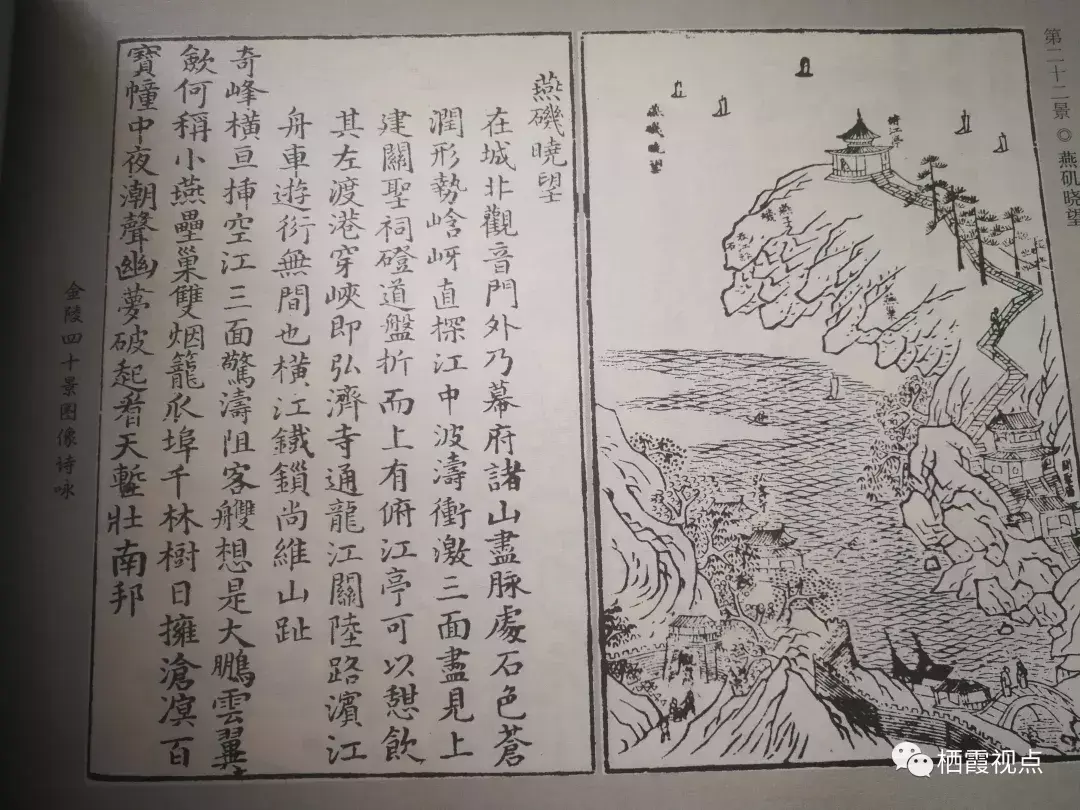 第二十二景◎燕矶晓望
俯江亭
燕磯曉望
燕子磯
燕磯曉望
在城北觀音門外乃幕府諸山盡脉處石色蒼
潤形勢峆岈直探江中波濤衝激三面盡見上
建關聖祠磴道盤折而上有俯江亭可以憩飲
其左渡港穿峽即弘濟寺通龍江關陸路濱江
舟車遊衍無間也橫江鐵鎖尚維山趾
奇峰橫亘揷空江三面驚濤阻客艭想是大鵬雲翼
歛何稱小燕壘巢雙烟籠瓜埠千林樹日擁滄溟百
寶幢中夜潮聲幽夢破起看天塹壯南邦
金陵四十景图像诗咏
栖霞视点